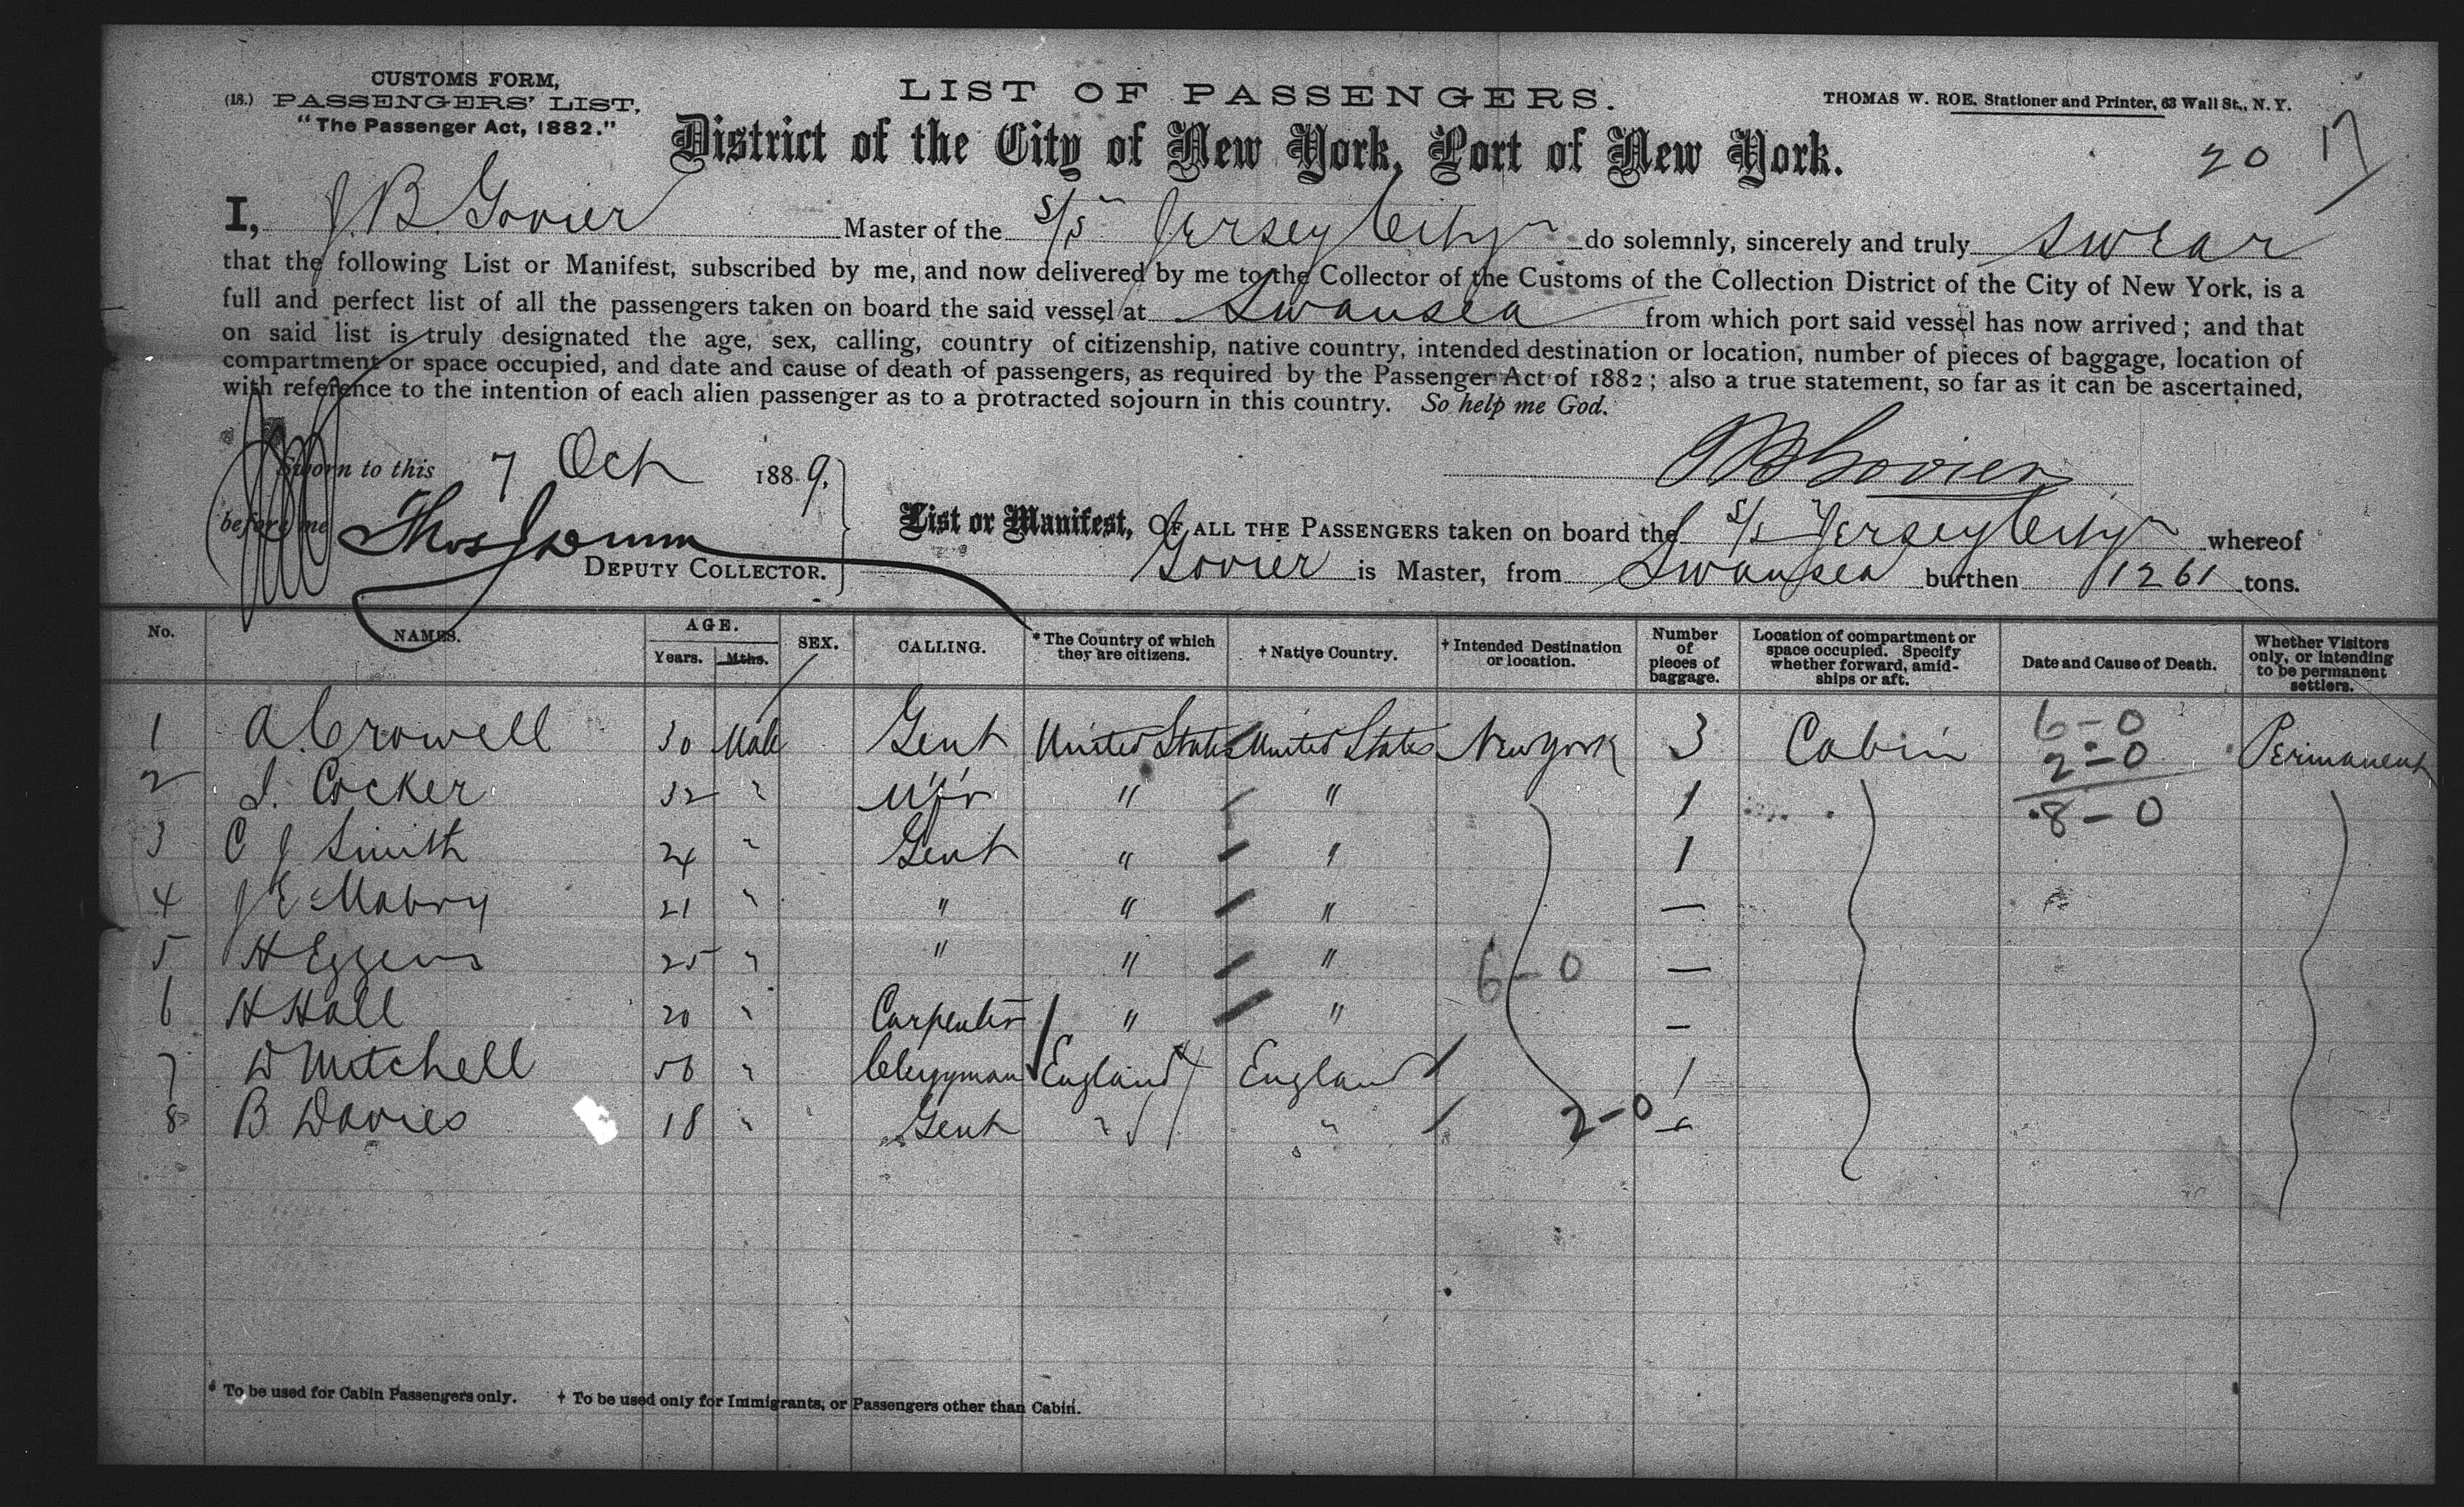 CUSTOMS FORM,
(18.) PASSENGERS' LIST,
"The Passenger Act, 1882."
LIST OF PASSENGERS.
THOMAS W. ROE, Stationer and Printer, 63 Wall St., N. Y.
District of the City of New York, Port of New York.
20 17
I, J. B. Govier Master of the S/S Jersey City do solemnly, sincerely and truly swear
that the following List or Manifest, subscribed by me, and now delivered by me to the Collector of the Customs of the Collection District of the City of New York, is a
full and perfect list of all the passengers taken on board the said vessel at Swansea from which port said vessel has now arrived; and that
on said list is truly designated the age, sex, calling, country of citizenship, native country, intended destination or location, number of pieces of baggage, location of
compartment or space occupied, and date and cause of death of passengers, as required by the Passenger Act of 1882; also a true statement, so far as it can be ascertained,
with reference to the intention of each alien passenger as to a protracted sojourn in this country. So help me God.
Sworn to this 7 Oct 1889,
J B Govier
before me Thos
DEPUTY COLLECTOR.
List or Manifest, OF ALL THE PASSENGERS taken on board the S/S Jersey City whereof
Govier is Master, from Swansea burthen 1261 tons.
No. NAMES. AGE. Years. Mths. SEX. CALLING. * The Country of which they are citizens. † Native Country. † Intended Destination or location. Number of pieces of baggage. Location of compartment or space occupied. Specify whether forward, amidships or aft. Date and Cause of Death. Whether Visitors only, or intending to be permanent settlers.
1 A. Crowell 30 Male Gent United States United States New York 3 Cabin 6-0 Permanent
2-0
2 J. Cocker 32 " " " 1 8-0
3 C J Smith 24 " Gent " " 1
4 J E Mabry 21 " " " " —
5 H Eggers 25 " " " " 6-0 —
6 H Hall 20 " Carpenter " " —
7 D Mitchell 56 " Clergyman England England 1
8 B. Davies 18 " Gent " " 2-0
* To be used for Cabin Passengers only. † To be used only for Immigrants, or Passengers other than Cabin.